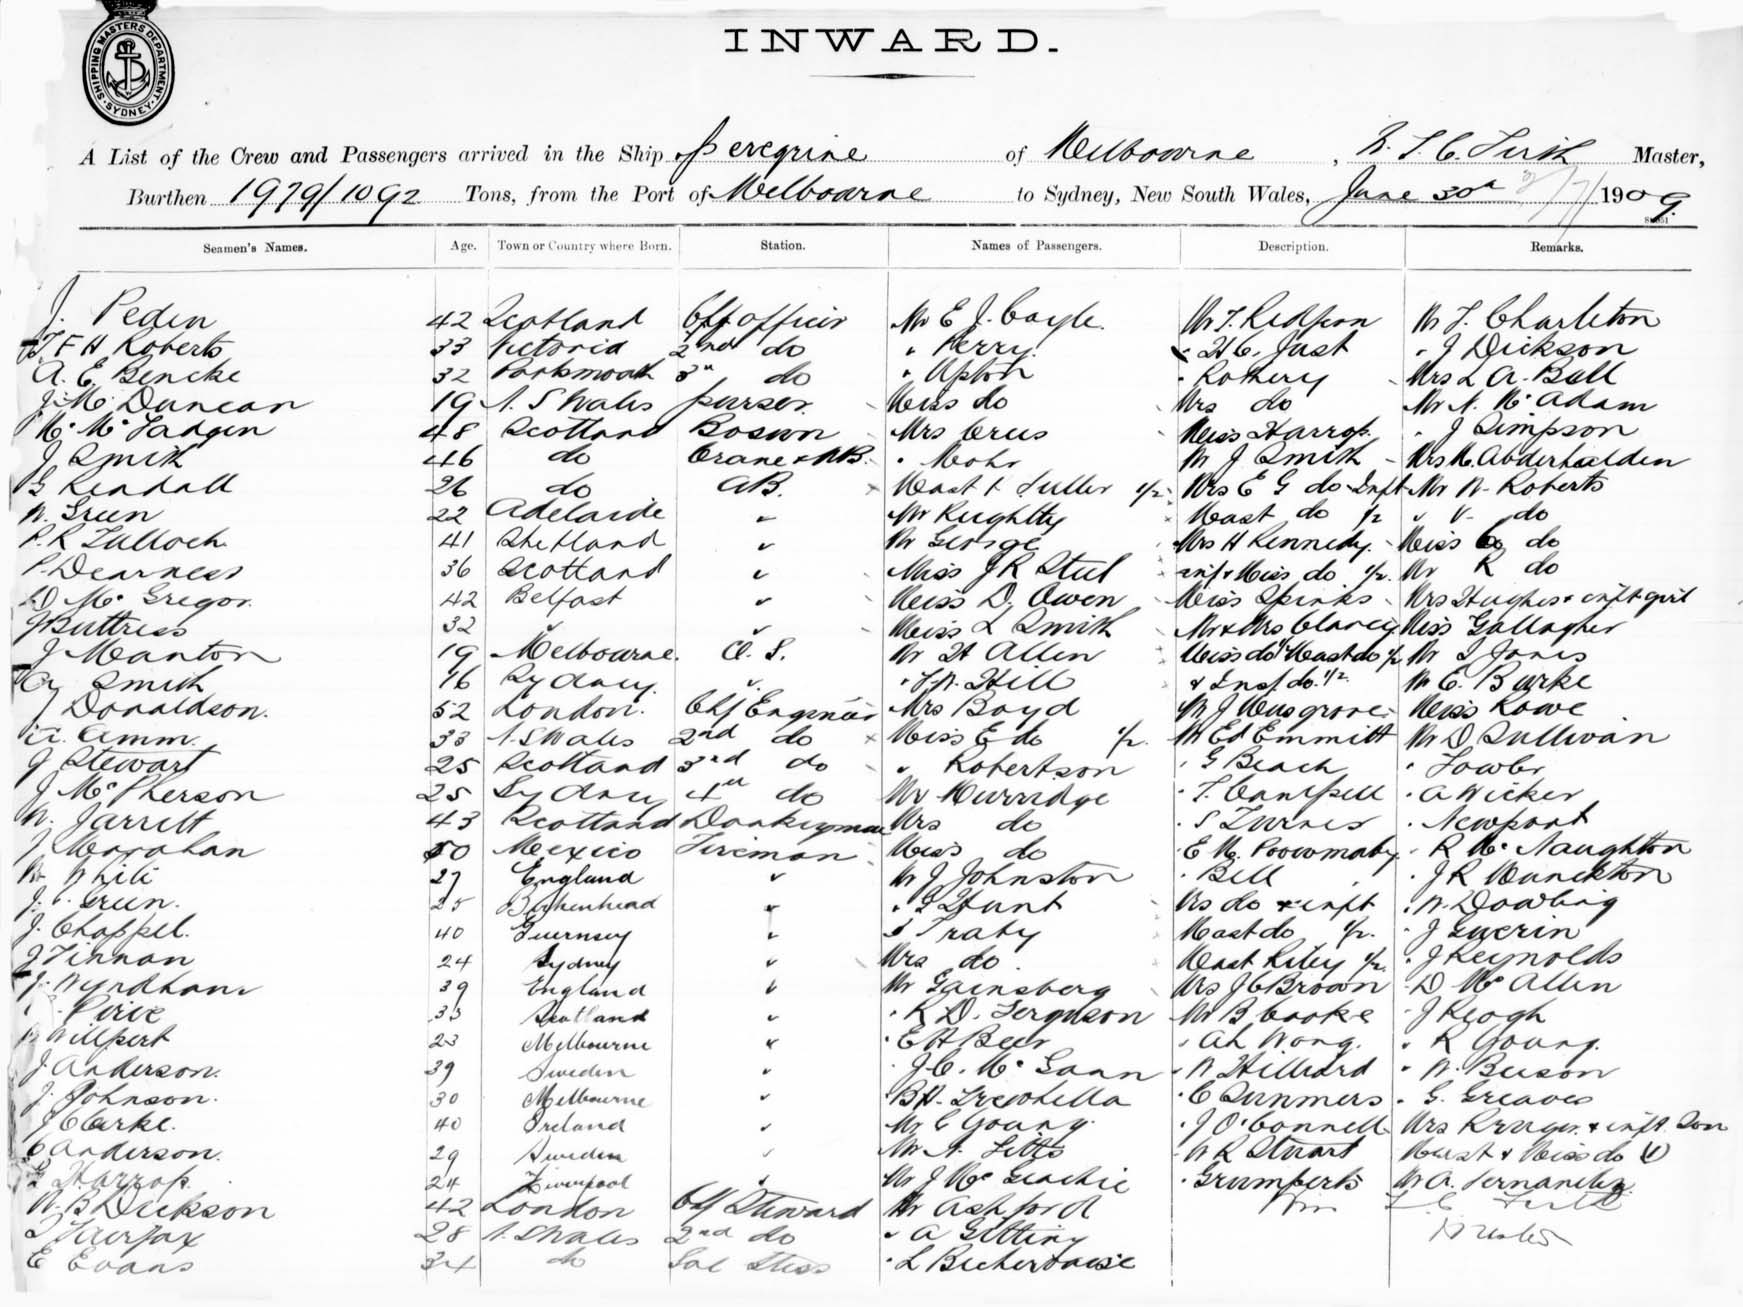 SHIPPING MASTERS DEPARTMENT. SYDNEY.
INWARD.
A List of the Crew and Passengers arrived in the Ship Peregrine of Melbourne, Master,
Burthen 1979/1092 Tons, from the Port of Melbourne to Sydney, New South Wales, June 30th 1909.
Seamen's Names. Age. Town or Country where Born. Station. Names of Passengers. Description. Remarks.
J. Peden 42 Scotland Chf officer Mr E J. Coyle. Mr T. Redfern Mr T. Charleton
F H Roberts 33 Victoria 2nd do " Perry. " H C. Just " J Dickson
A. E. Bencke 32 Portsmouth 3rd do " Upton " Rothery Mrs L A. Bell
J. Mc Duncan 19 N. S Wales purser. Miss do Mrs do Mr N. Mc Adam
Mc Fadgen 48 Scotland Bosun Mrs Crus Miss Harrop. " J Simpson
J Smith 46 do Mohr Mr J Smith Mrs M. Abderhalden
G Kendall 26 do AB. Mast Fuller 1/2 Mrs E G do Inft Mr W. Roberts
W. Green 22 Adelaide " Mr Knightly Mast do 1/2 " V. do
P. R Tulloch 41 Shetland " Mr George Mrs H Kennedy. Miss do
P. Dearness 36 Scotland " Miss J R Steel inf & Miss do 1/2. Mr R do
D Mc Gregor. 42 Belfast " Miss D. Owen Miss Spinks Mrs Hughes & inft girl
J Buttress 32 " " Miss L Smith Mr & Mrs Clancy Miss Gallagher
J Manton 19 Melbourne. O. S. Mr H Allen Miss do Mast do 1/2 Mr Jones
Smith 16 Sydney. " Hill & Inf. do. 1/2 Mr C. Burke
J Donaldson. 52 London. Chf Engineer Mrs Boyd Mr J Musgrove Miss Rowe
Amm. 33 N. S Wales 2nd do Miss E do 1/2. Mr Ed Emmitt Mr D Sullivan
J Stewart 25 Scotland 3rd do " Robertson " G Beach " Fowler
J Mc Pherson 25 Sydney 4th do Mr Murridge " T. Campbell " A Wicker
W. Jarrett 43 Scotland Donkeyman Mrs do " S Turner " Newport
J Monahan 50 Mexico Fireman Miss do " E M. " R Mc Naughton
White 27 England " Mr J Johnston " Bell " J R Monckton
Green. 25 Birkenhead " " Hunt Mrs do & inft " W. Dowling
J. Chappel. 40 Guernsey " " Traby Mast do 1/2. " J Guerin
J Finnan 24 Sydney " Mrs do. Mast Riley 1/2. " J Reynolds
Wyndham 39 England " Mr Gainsberg Mrs J C Brown " D Mc Allen
Pirie 33 Scotland " " R D. Ferguson Mr B Cooke " J Keogh
Willpert 23 Melbourne " " E A Beer " Ah Wong. " R Young.
J. Anderson. 39 Sweden " " J C. Mc Gann " W Hilliard " W. Beeson
J. Johnson. 30 Melbourne " " B H. Trewhella " C Summers " G. Greaves
J Clarke. 40 Ireland " Mr C Young. " J O'Connell Mrs Kruger. & inft. Son
C Anderson. 29 Sweden " Mr A. Fitts " W R Stuart Mast & Miss do
Harrop. 24 Liverpool " Mr J Mc Geachie " Grumperts Mr A. Fernandez
W. B Dickson 42 London Chf Steward Mr Ashford
Fairfax 28 N. S Wales 2nd do " A Gitting Master
E Evans 34 do Sal Stess " L Bechervaise